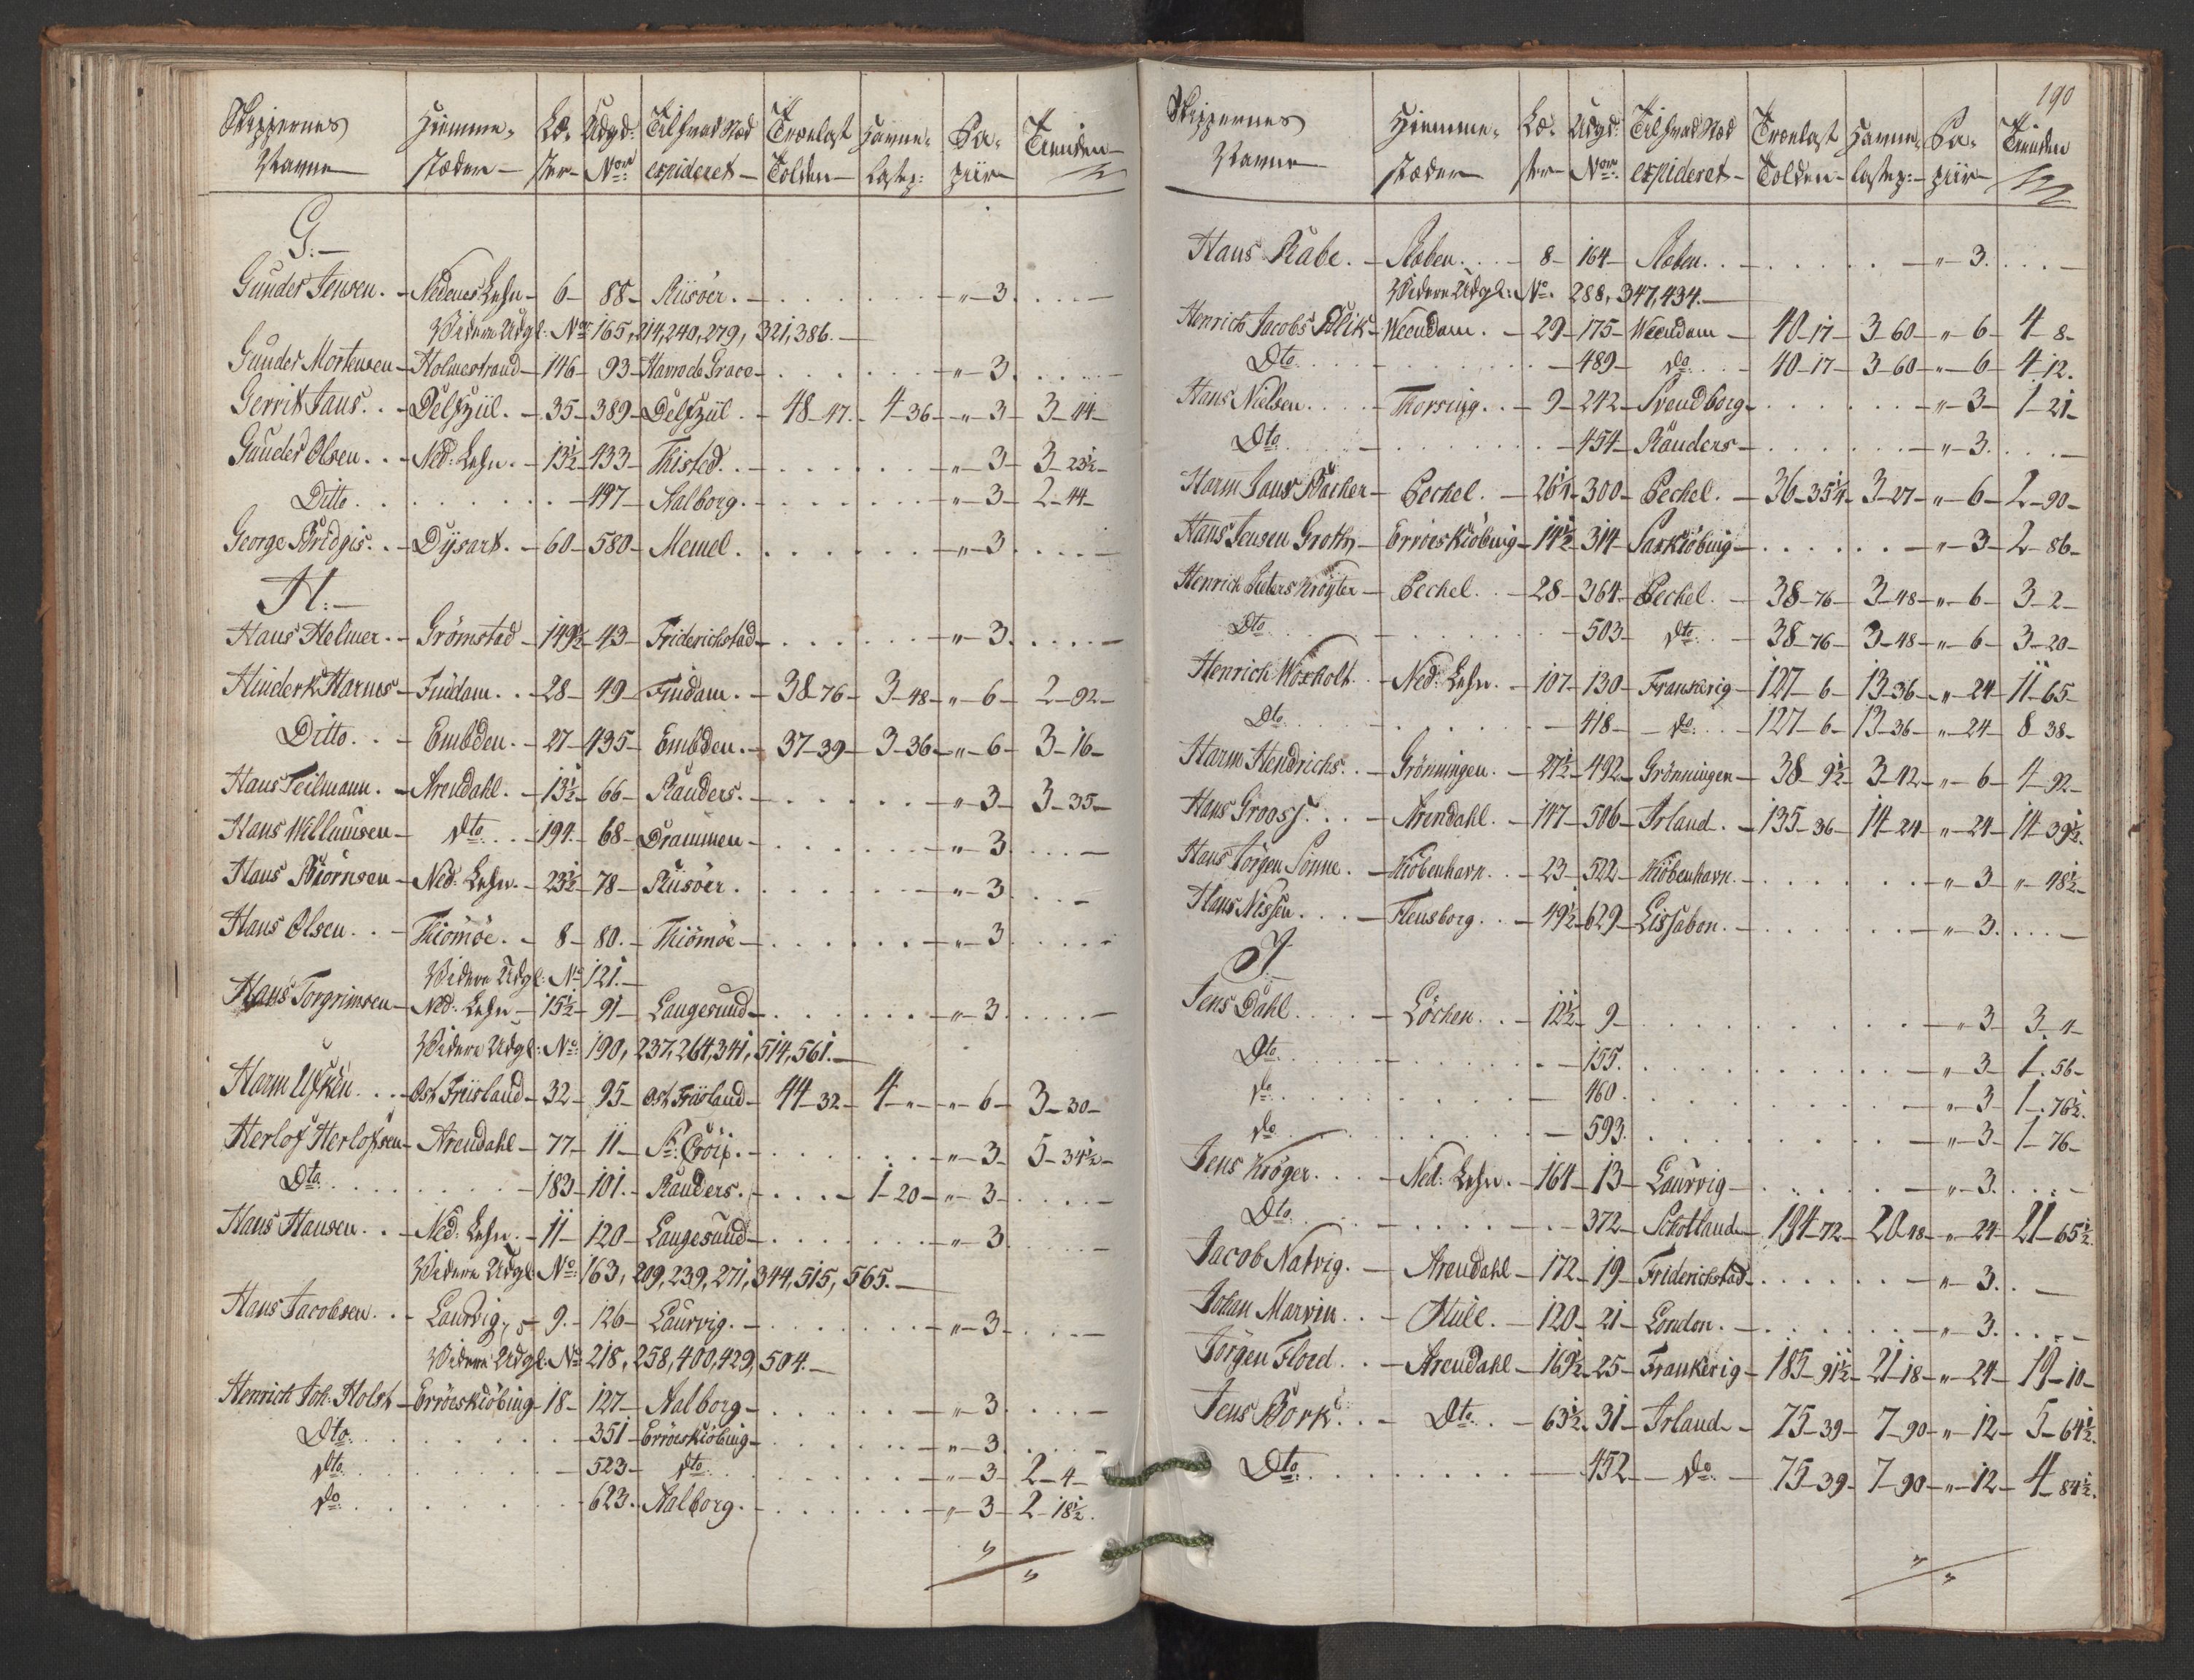 Skippernes Hiemme- Læ- Udgd: Til hvad Stæd Trælast Havne- Pa- Tienden
Navne stæder ster Nor: expideret Tolden Lastep: piir
G:
Gunder Jensen. Nedenes Lehn 6 88 Riisöer. " 3
Videre Udgl: Nor: 165, 214, 240, 279, 321, 386.
Gunder Mortensen Holmestrand 146 93 Havre de Grace " 3
Gerrit Jans. Delfzÿl. 35 389 Delfzÿl. 48-47. 4-36 " 3 3-14
Gunder Olsen. Ned: Lehn. 13½ 433 Thisted. " 3 3-23½
Ditto. 497 Aalborg. " 3 2-44
George Bridgis. Dysart. 60 580 Memel. " 3
H:
Hans Helmer. Grömstad 149½ 43 Friderichstad " 3
Hinderk Harms Fiudam. 28 49 Fiudam. 38-76 3-48 " 6 2-92
Ditto. Embden. 27 435 Embden. 37-39 3-36 " 6 3-16
Hans Teilmann. Arendahl. 13½ 66 Randers. " 3 3-35
Hans Willumsen Dto 194. 68 Drammen " 3
Hans Biörnsen Ned: Lehn. 23½ 78 Riisöer. " 3
Hans Olsen. Thiömöe. 8 80. Thiömöe " 3
Videre Udgl: No 121.
Hans Torgrimsen Ned: Lehn 15½ 91 Langesund " 3
Videre Udgl: No: 190, 237, 264, 341, 514, 561.
Harm Ufken. Ost Friisland 32 95 Ost Friisland 44-32 4-" " 6 3-30
Herlof Herlofsen Arendahl 77 11 St: Croix. " 3 5-34½
Dto. 183 101. Randers. 1-20 " 3
Hans Hansen. Ned: Lehn. 11 120 Langesund " 3
Videre Udgl: No: 163, 209, 239, 271, 344, 515, 565.
Hans Jacobsen. Laurvig, 9. 126 Laurvig. " 3
Videre Udgl: No 218, 258, 400, 429, 504.
Henrich Joh. Holst Erröeskiöbing 18 127 Aalborg " 3
Dto. 351 Erröeskiöbing " 3
Dto. 523 Dto. " 3 2-4
Do. 623. Aalborg. " 3 2-18½.
190
Skippernes Hiemme- Læ- Udgd: Til hvad Stæd Trælast Havne- Pa- Tienden
Navne stæder ster Nor: expideret Tolden lastep: piir
Hans Rabe. Staben. 8 164 Staben. " 3.
Videre Udgl: No. 288, 347, 434.
Henrich Jacobs Blik Weendam. 29 175 Weendam 40-17 3-60 " 6 4-8
Dto. 489 do. 40-17 3-60 " 6 4-12.
Hans Nielsen. Thorsing. 9 242 Svendborg " 3 1-21
Dto. 454 Randers " 3.
Harm Jans Backer Peckel. 26¼ 300 Peckel. 36-35¼ 3-27 " 6 2-90
Hans Jensen Groth Erröeskiöbing 14½ 314 Saxkiöbing " 3 2-86
Henrich Pieters Kröyter Peckel. 28 364 Peckel. 38-76 3-48 " 6 3-2
Dto. 503 Dto. 38-76 3-48 " 6 3-20
Henrich Woxholt. Ned: Lehn. 107 130 Frankerig 127-6 13-36 " 24 11-65
Dto. 418 do. 127-6 13-36 " 24 8-38
Harm Hendrichs. Grönningen. 27½ 492 Grönningen 38-9½ 3-42 " 6 4-92
Hans Gross. Arendahl. 147 506 Irland. 135-36 14-24 " 24 14-39½.
Hans Jörgen Sönne. Kiöbenhavn. 23 522 Kiöbenhavn. " 3 "-48½
Hans Nissen. Flensborg. 49½ 629 Lissabon. " 3.
J.
Jens Dahl. Löcken. 12½ 9 " 3 3-"
Dto. 155. " 3 1-56
do. 460. " 3 1-76½.
do. 593. " 3 1-76
Jens Kröger. Ned: Lehn. 164 13 Laurvig " 3.
Dto. 372 Schotland 194-72 20-48 " 24 21-65½.
Jacob Natvig. Arendahl 172 19 Friderichstad " 3.
Johan Marvin. Hull. 120 21 London. " 3.
Jörgen Floed. Arendahl 169½ 25 Frankerig 185-91½ 21-18 " 24 19-10
Jens Bork. Dto. 63½ 31 Irland 75-39 7-90 " 12 5-64½.
Dto. 452 do. 75-39 7-90 " 12 4-84½.